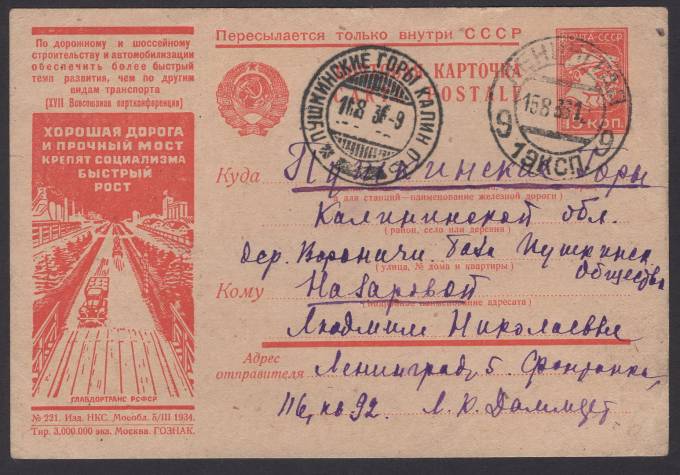 Пересылается только внутри СССР
По дорожному и шоссейному
строительству и автомобилизации
обеспечить более быстрый
темп развития, чем по другим
видам транспорта
(XVII Всесоюзная партконференция)
ХОРОШАЯ ДОРОГА
И ПРОЧНЫЙ МОСТ
КРЕПЯТ СОЦИАЛИЗМА
БЫСТРЫЙ
РОСТ
ГЛАВДОРТРАНС РСФСР
№ 221. Изд. НКС. Мособл. 5/III 1934.
Тир. 3.000.000 экз. Москва. ГОЗНАК.
КАРТОЧКА
ПОЧТА СССР
15 КОП.
ПУШКИНСКИЕ ГОРЫ КАЛИН О
16 8 36-9
15 8 36
9 9
19 ЭКСП
Куда Пушкинские Горы
(для станций—наименование железной дороги)
Калининской обл.
(район, село или деревня)
дер. Вороничи. база Пушкинск.
(улица, № дома и квартиры)
Общества
Кому Назаровой
Людмиле Николаевне
Адрес
отправителя
Ленинград, 5. Фонтанка,
116, кв 92. Л. К.